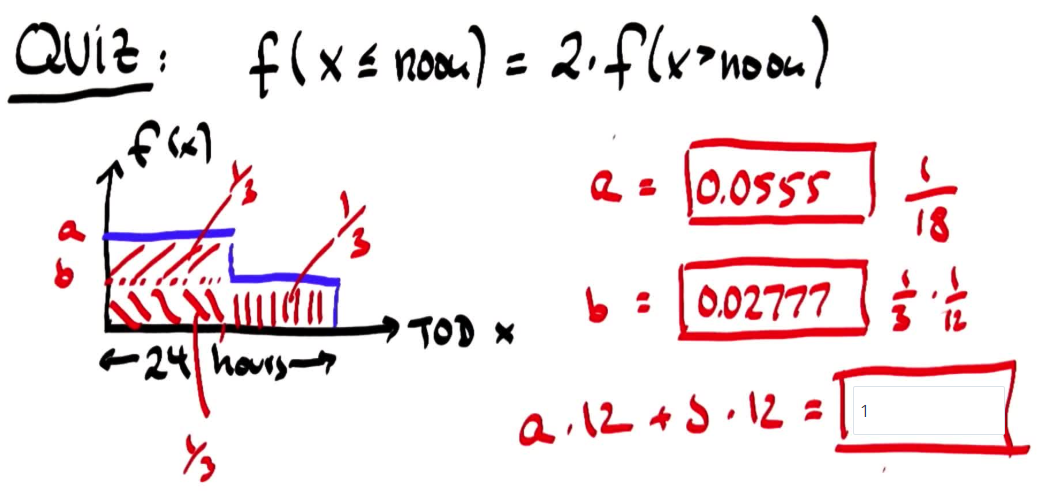 QUIZ: f(x ≤ noon) = 2·f(x>noon)
f(x)
1/3
1/3
a
b
TOD x
24 hours
1/3
a = 0.0555 1/18
b = 0.02777 1/3 · 1/12
a·12 + b·12 = 1